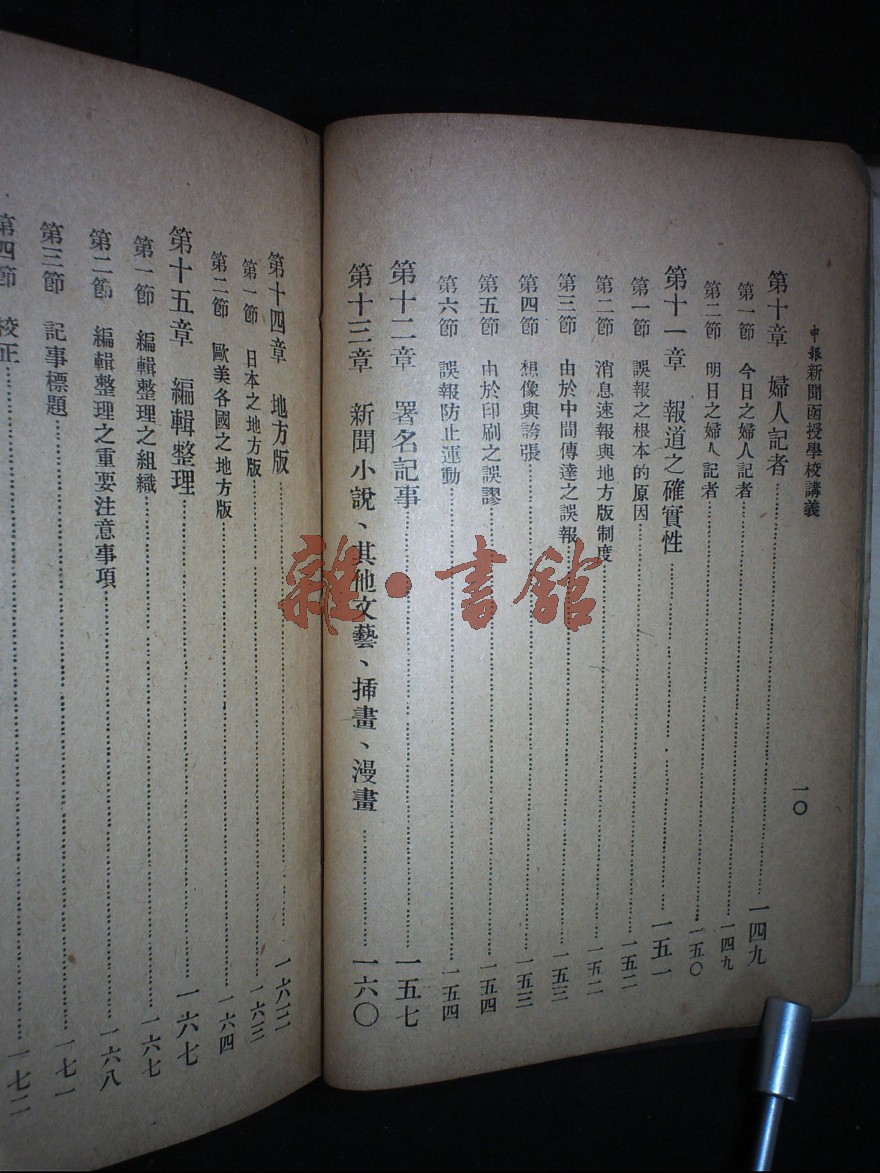 申報新聞函授學校講義
一〇
第十章 婦人記者……一四九
第一節 今日之婦人記者……一四九
第二節 明日之婦人記者……一五〇
第十一章 報道之確實性……一五一
第一節 誤報之根本的原因……一五二
第二節 消息速報與地方版制度……一五二
第三節 由於中間傳達之誤報……一五三
第四節 想像與誇張……一五三
第五節 由於印刷之誤謬……一五四
第六節 誤報防止運動……一五四
第十二章 署名記事……一五七
第十三章 新聞小說、其他文藝、揷畫、漫畫……一六〇
第十四章 地方版……一六三
第一節 日本之地方版……一六三
第二節 歐美各國之地方版……一六四
第十五章 編輯整理……一六七
第一節 編輯整理之組織……一六七
第二節 編輯整理之重要注意事項……一六八
第三節 記事標題……一七一
第四節 校正……一七二
雜·書館